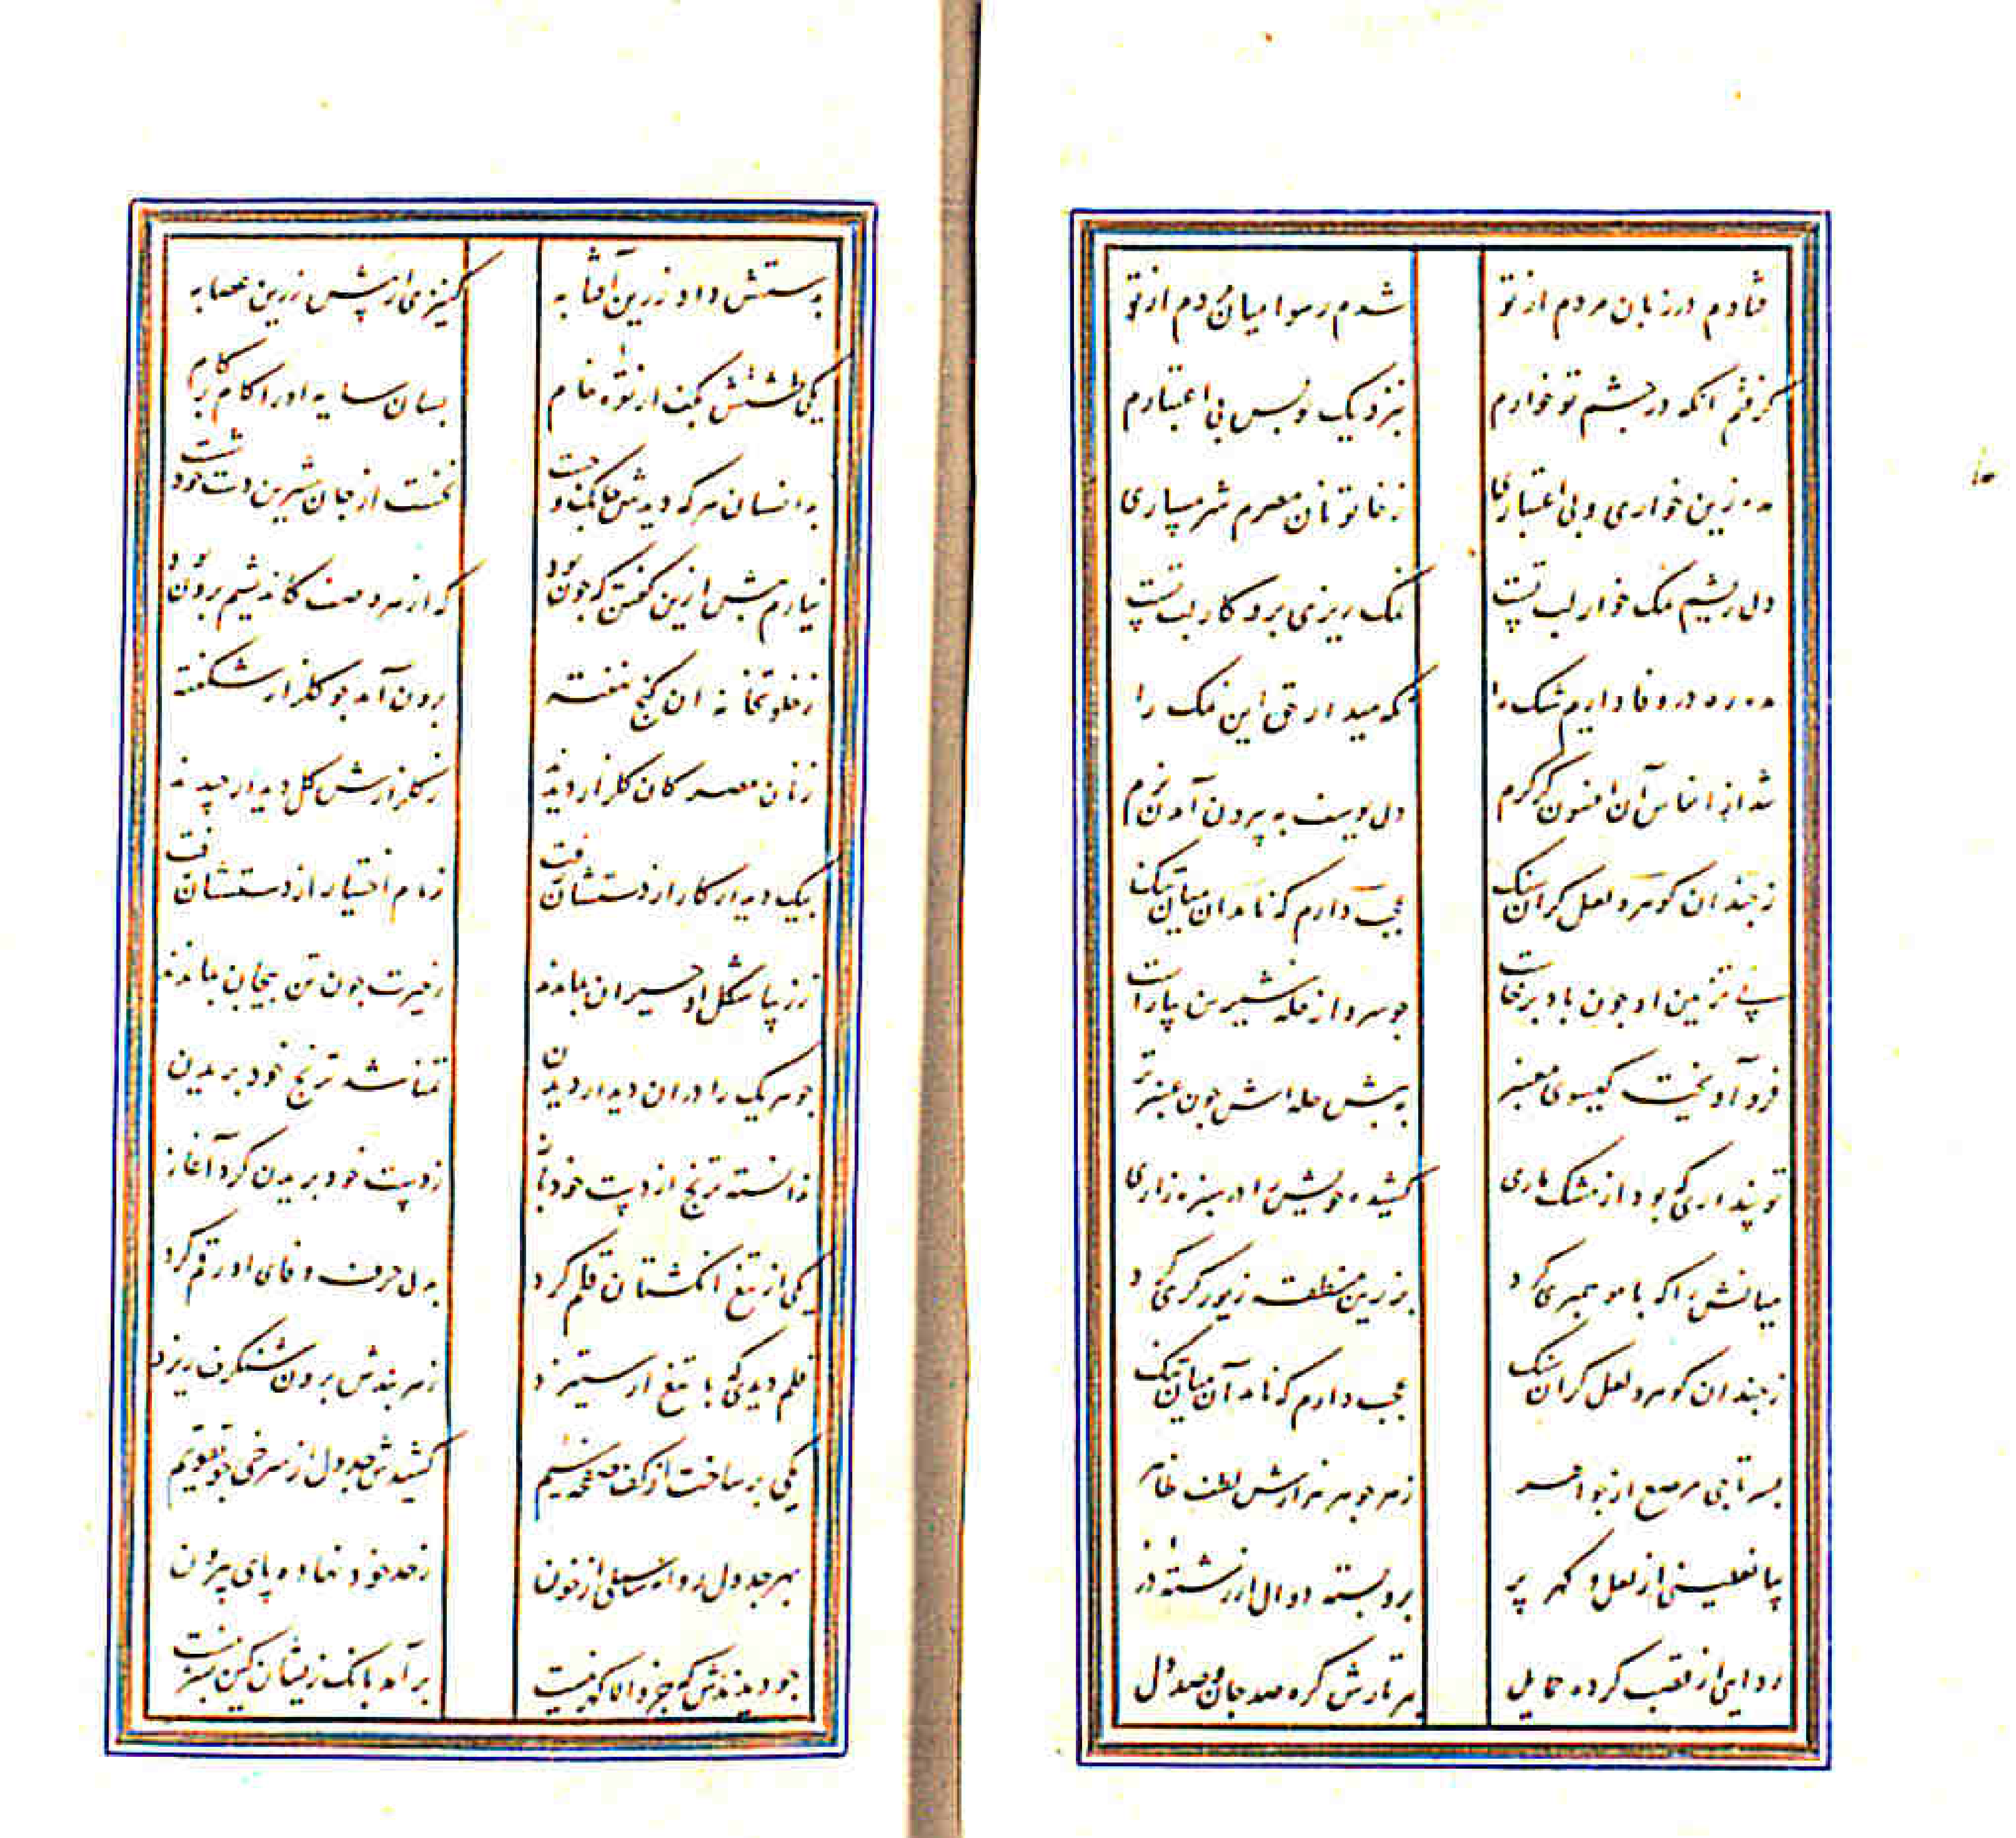 فتادم در زبان مردم از تو شدم رسوا میان مردم از تو
گرفتم آنکه در چشم تو خوارم بنزدیک تو بس بی اعتبارم
مده زین خواری و بی اعتباری ز خاتونان مصرم شرمساری
دل ریشم نمک خوار لب تست نمک ریزی برو کار لب تست
مده ره در وفا داریم شک را نگه میدار حق این نمک را
شد از انفاس آن افسون گر گرم دل یوسف به بیرون آمدن نرم
ز چندان گوهر و لعل گران سنگ عجب دارم که نامد ان میان تنگ
پی تزیین او چون باد برخاست چو سرو از حله شیرین بیاراست
فرو آویخت گیسوی معنبر به پیش حله اش چون عنبر تر
تو پنداری که بود از مشک ماری کشیده خویش را در سبزه زاری
میانش را که با مو همسری کرد بزرین منطقه زیور گری کرد
ز چندان گوهر و لعل گران سنگ عجب دارم که نامد آن میان تنگ
بسر تاجی مرصع از جواهر ز هر جوهر هزارش لطف ظاهر
بپا نعلینی از لعل و گهر پر برو بسته دوال از رشته در
ردایی از قصب کرده حمایل بهر تارش گره صد جان و صد دل
۱۰
بدستش داد زرین آفتابه کنیزی از پیش زرین عصابه
یکی طشتش بکف از نقره خام بسان سایه او را کام بر کام
بدانسان هر که دیدش چابک و چست نخست از جان شیرین دست خود شست
نیارم بیش ازین گفتن که چون بود که از هر وصف کاندیشم برون بود
ز خلوتخانه ان گنج نهفته برون آمد چو گلزار شکفته
زنان مصر کان گلزار دیدند ز گلزارش گل دیدار چیدند
بیک دیدار کار از دستشان رفت زمام اختیار از دستشان رفت
ز زیبا شکل او حیران بماندند ز حیرت چون تن بیجان بماندند
چو هر یک را در ان دیدار دیدن تمنا شد ترنج خود بریدن
ندانسته ترنج از دست خود باز ز دست خود بریدن کرد آغاز
یکی از تیغ انگشتان قلم کرد به دل حرف وفای او رقم کرد
قلم دیدی که با تیغ ار ستیزد ز هر بندش برون شنگرف ریزد
یکی بر ساخت از کف صفحه سیم کشیدش جدول از سرخی چو تقویم
بهر جدول روانه سیلی از خون ز حد خود نهاده پای بیرون
چو دیدندش که جز والا گهر نیست بر آمد بانک زیشان کین بشر نیست